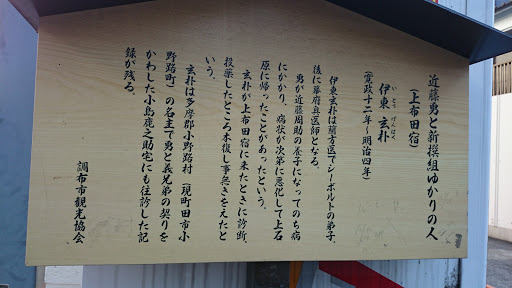 近藤勇と新撰組ゆかりの人
(上布田宿)
いとう げんぼく
伊東 玄朴
(寛政十二年~明治四年)
伊東玄朴は蘭方医でシーボルトの弟子、
後に幕府奥医師となる。
勇が近藤周助の養子になってのち病
にかかり、病状が次第に悪化して上石
原に帰ったことがあったという。
玄朴が上布田宿に来たときに診断、
投薬したところ本復し事無きをえたと
いう。
玄朴は多摩郡小野路村(現町田市小
野路町)の名主で勇と義兄弟の契りを
かわした小島鹿之助宅にも往診した記
録が残る。
調布市観光協会